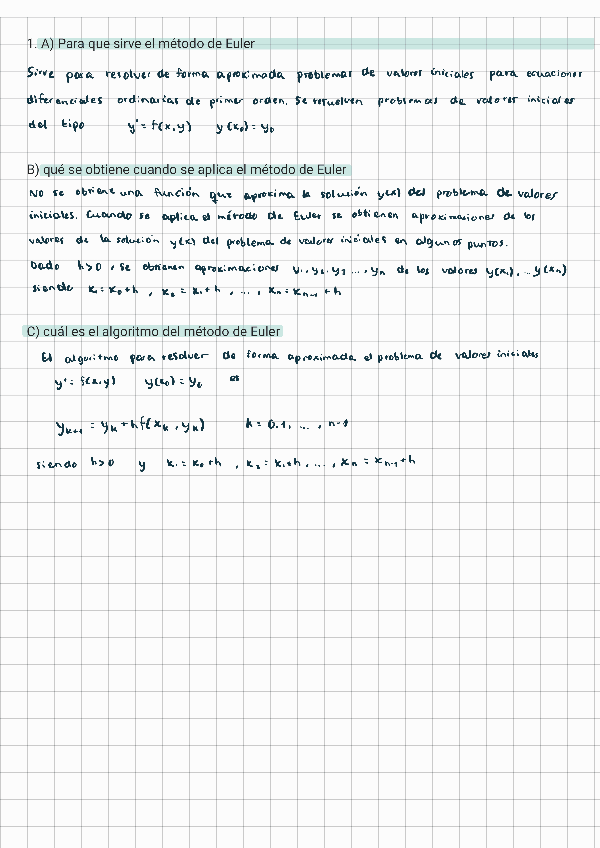 1. A) Para que sirve el método de Euler
Sirve para resolver de forma aproximada problemas de valores iniciales para ecuaciones
diferenciales ordinarias de primer orden. Se resuelven problemas de valores iniciales
del tipo y' = f(x,y) y(x₀) = y₀
B) qué se obtiene cuando se aplica el método de Euler
No se obtiene una función que aproxima la solución y(x) del problema de valores
iniciales. Cuando se aplica el método de Euler se obtienen aproximaciones de los
valores de la solución y(x) del problema de valores iniciales en algunos puntos.
Dado h>0, se obtienen aproximaciones y₁, y₂, y₃ ..., yₙ de los valores y(x₁), ... y(xₙ)
siendo x₁ = x₀+h, x₂ = x₁+h, ..., xₙ = xₙ₋₁+h
C) cuál es el algoritmo del método de Euler
El algoritmo para resolver de forma aproximada el problema de valores iniciales
y' = f(x,y) y(x₀) = y₀ es
yₖ₊₁ = yₖ + hf(xₖ, yₖ) k = 0.1, ..., n-1
siendo h>0 y x₁ = x₀+h, x₂ = x₁+h, ..., xₙ = xₙ₋₁+h